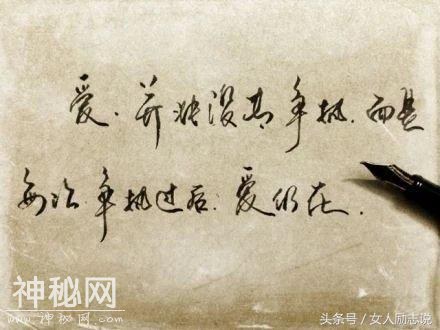 爱.并非没有争执.而是
每次争执过后.爱仍在.
神秘网
www.神秘网.com
头条号／女人励志说